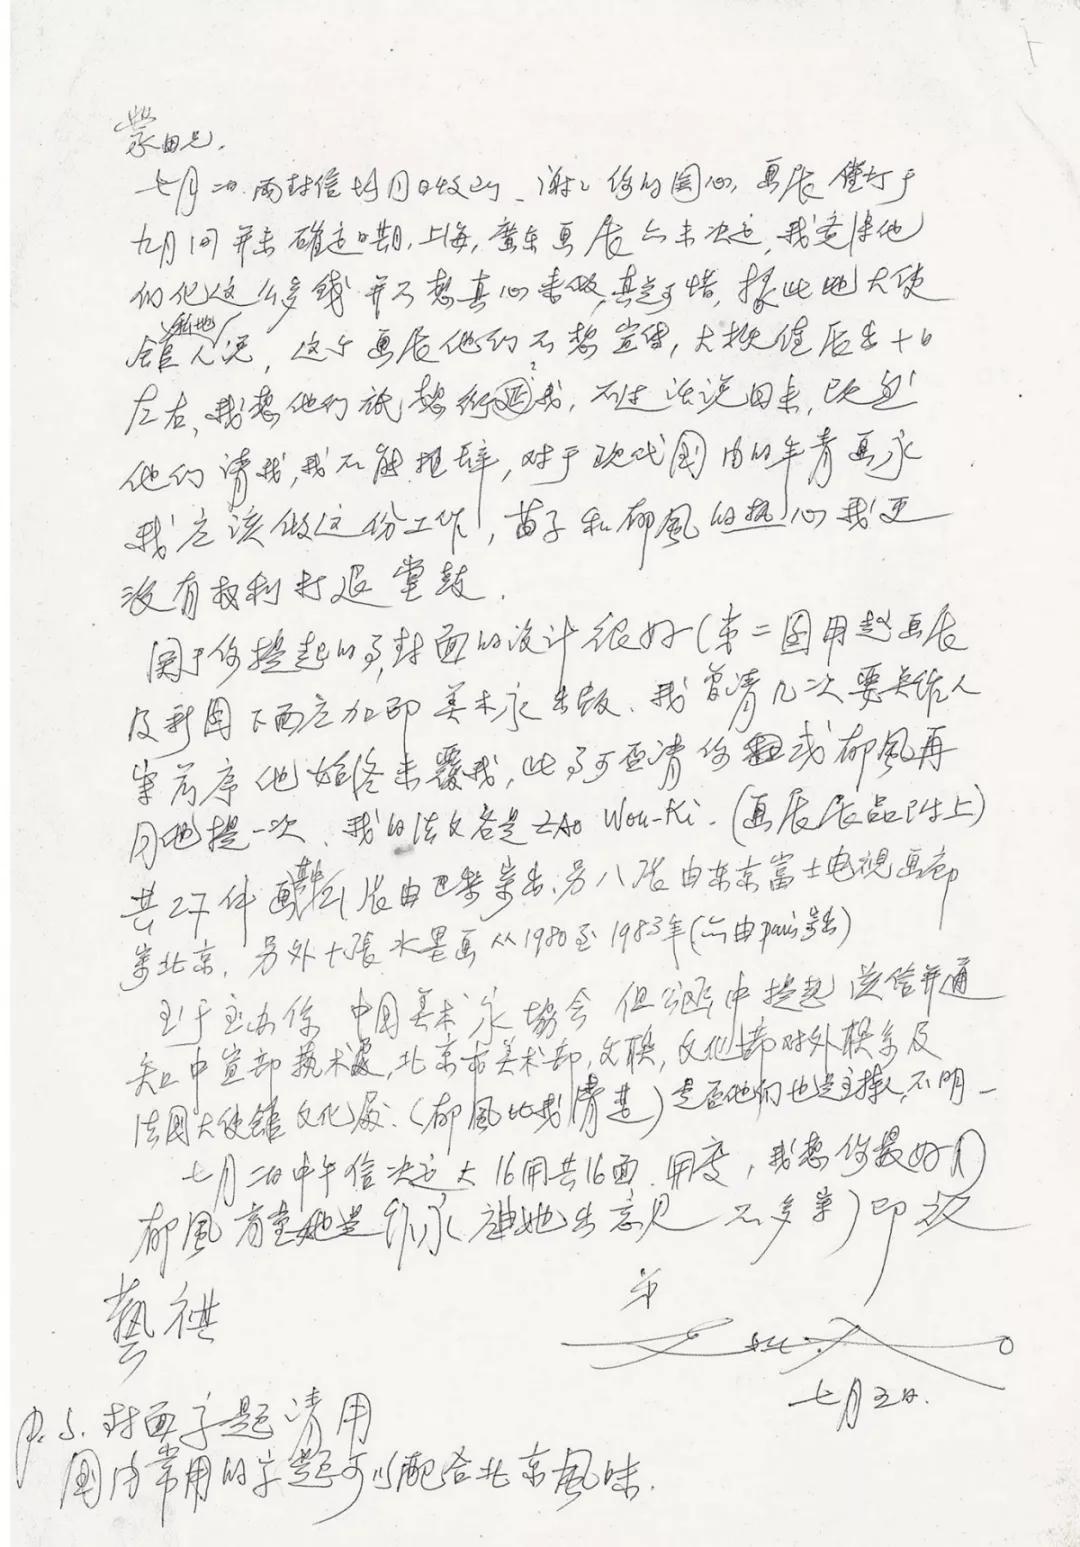 蒙田兄.
七月二日.两封信均同日收到、谢谢你的关心,画展僅訂于
九月间并未確定日期,上海,廣东画展亦未决定,我竟得他
们化这么多钱并不想真心来做,真是可惜,據此地大使
館人说,这个画展他们不想宣傳,大概值
新地
左右,我想他们祗想我,不过话说回来,既然
他们请我,我不能推辞,对于现代国内的年青画家
我应该做这份工作,苗子和郁風的热心我更
没有权利打退堂鼓.
関于你提起的事,封面的设计很好(第二图用赵画展
及新图下面应加印美术家出版.我曾请几次要
筆者序他始终未覆我,此事可否请你或郁風再
同他提一次、我的法文名是 ZAO Wou-Ki.(画展展品附上)
共27件画,張由巴黎寄出,另八張由东京富士电视画廊
寄北京.另外十張水墨画从1980至1983年(亦由paris寄出)
至于主办係中国美术家協会但公函中提起送信并通
知中宣部藝术處,北京市美术部,文联,文化部对外联系及
法国大使館文化處.(郁風比我清楚)是否他们也是主持人,不明、
七月二日中午信决定大16开共16面.開度,我想你最好同
郁風商量她是作家(她出意见不多寫)即颂
藝祺
弟
无极
七月五日.
P.S.封面字题请用
国内常用的字題可以配合北京風味.